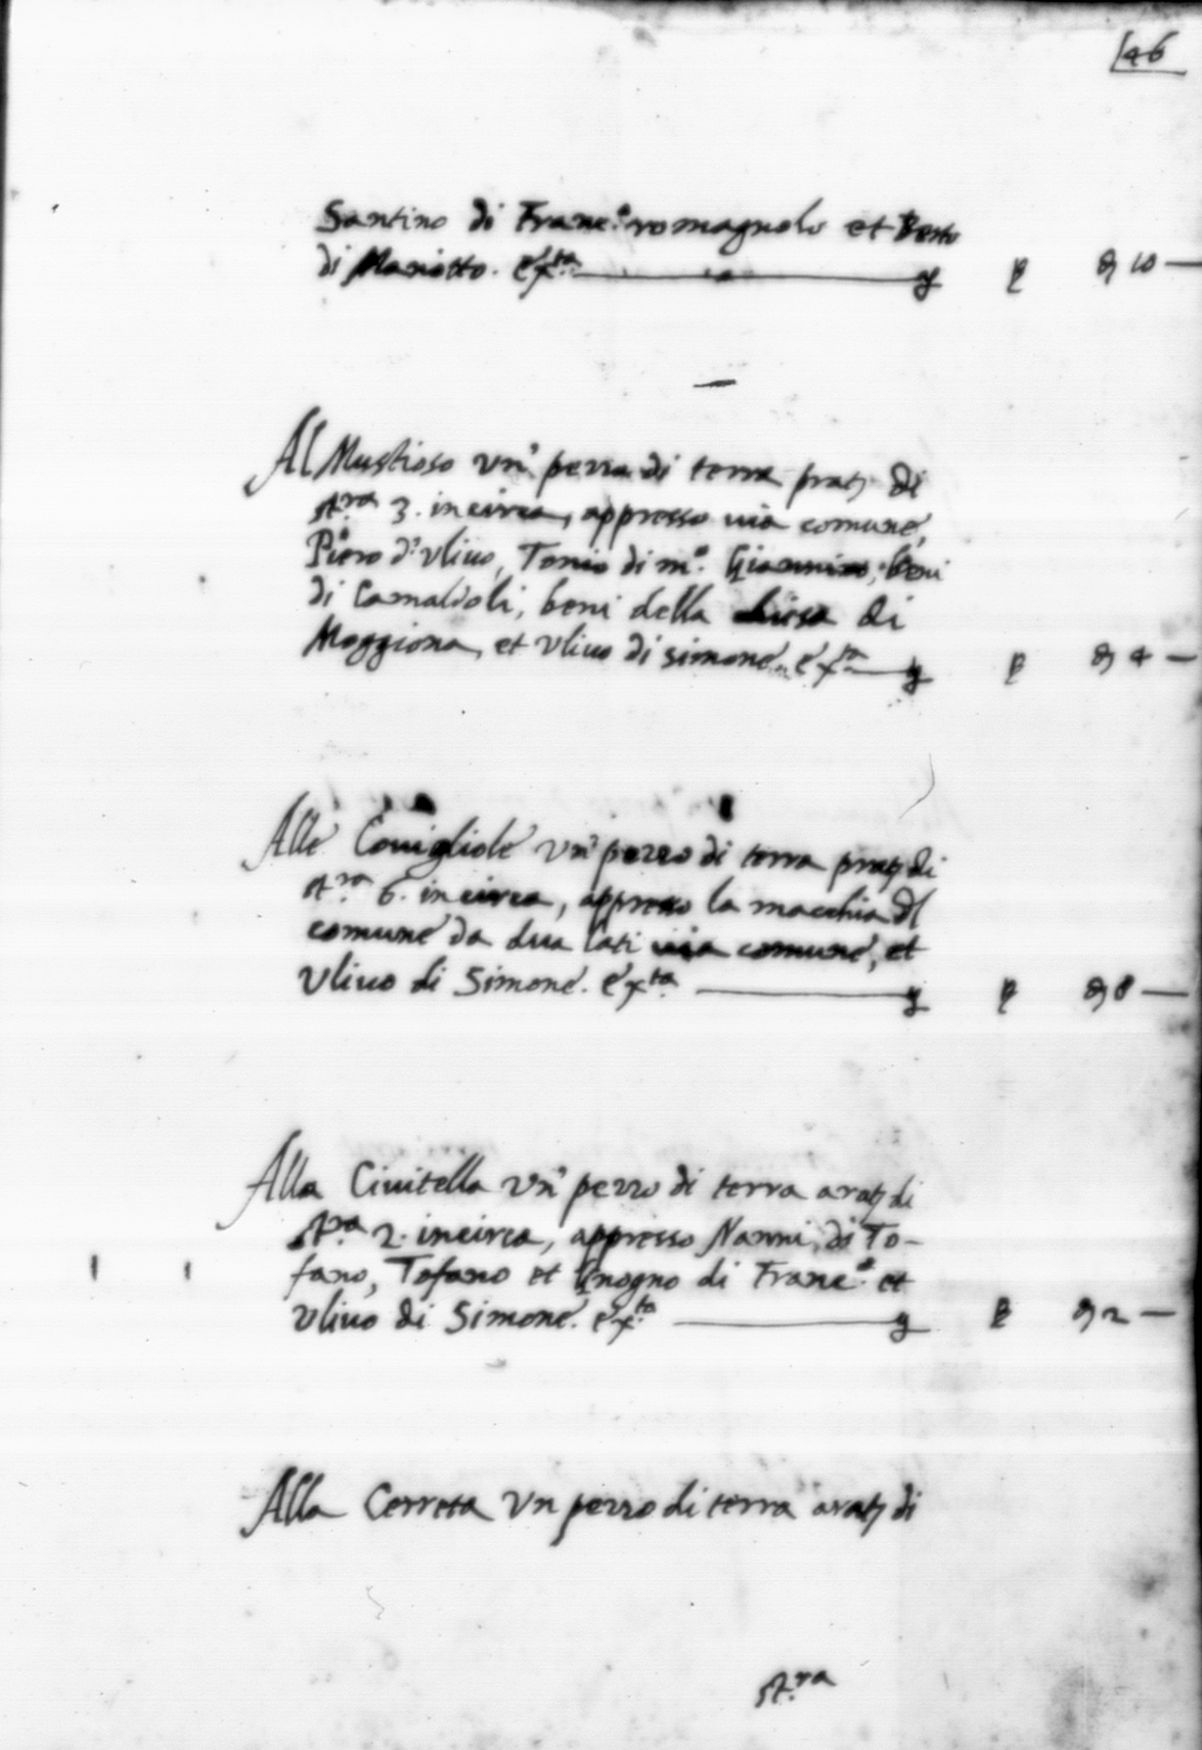 46
Santino di Franc.o romagnolo et Berto
di Mariotto. &c.ta
10
Al Mustioso un' pezzo di terra prat. di
st.ra 3. in circa, appresso via comune,
Piero d'Ulivo, Tonio di m.o Giannino, beni
di Camaldoli, beni della chiesa di
Moggiona, et Ulivo di simone
4
Alle Conigliole un' pezzo di terra prat. di
st.ra 6. in circa, appresso la macchia dl
comune da dua lati via comune, et
Ulivo di Simone.
8
Alla Civitella un' pezzo di terra arat. di
st.ra 2. in circa, appresso Nanni di To-
fano, Tofano et Gnogno di Franc.o et
Ulivo di Simone.
2
Alla Cerreta un pezzo di terra arat. di
st.ra